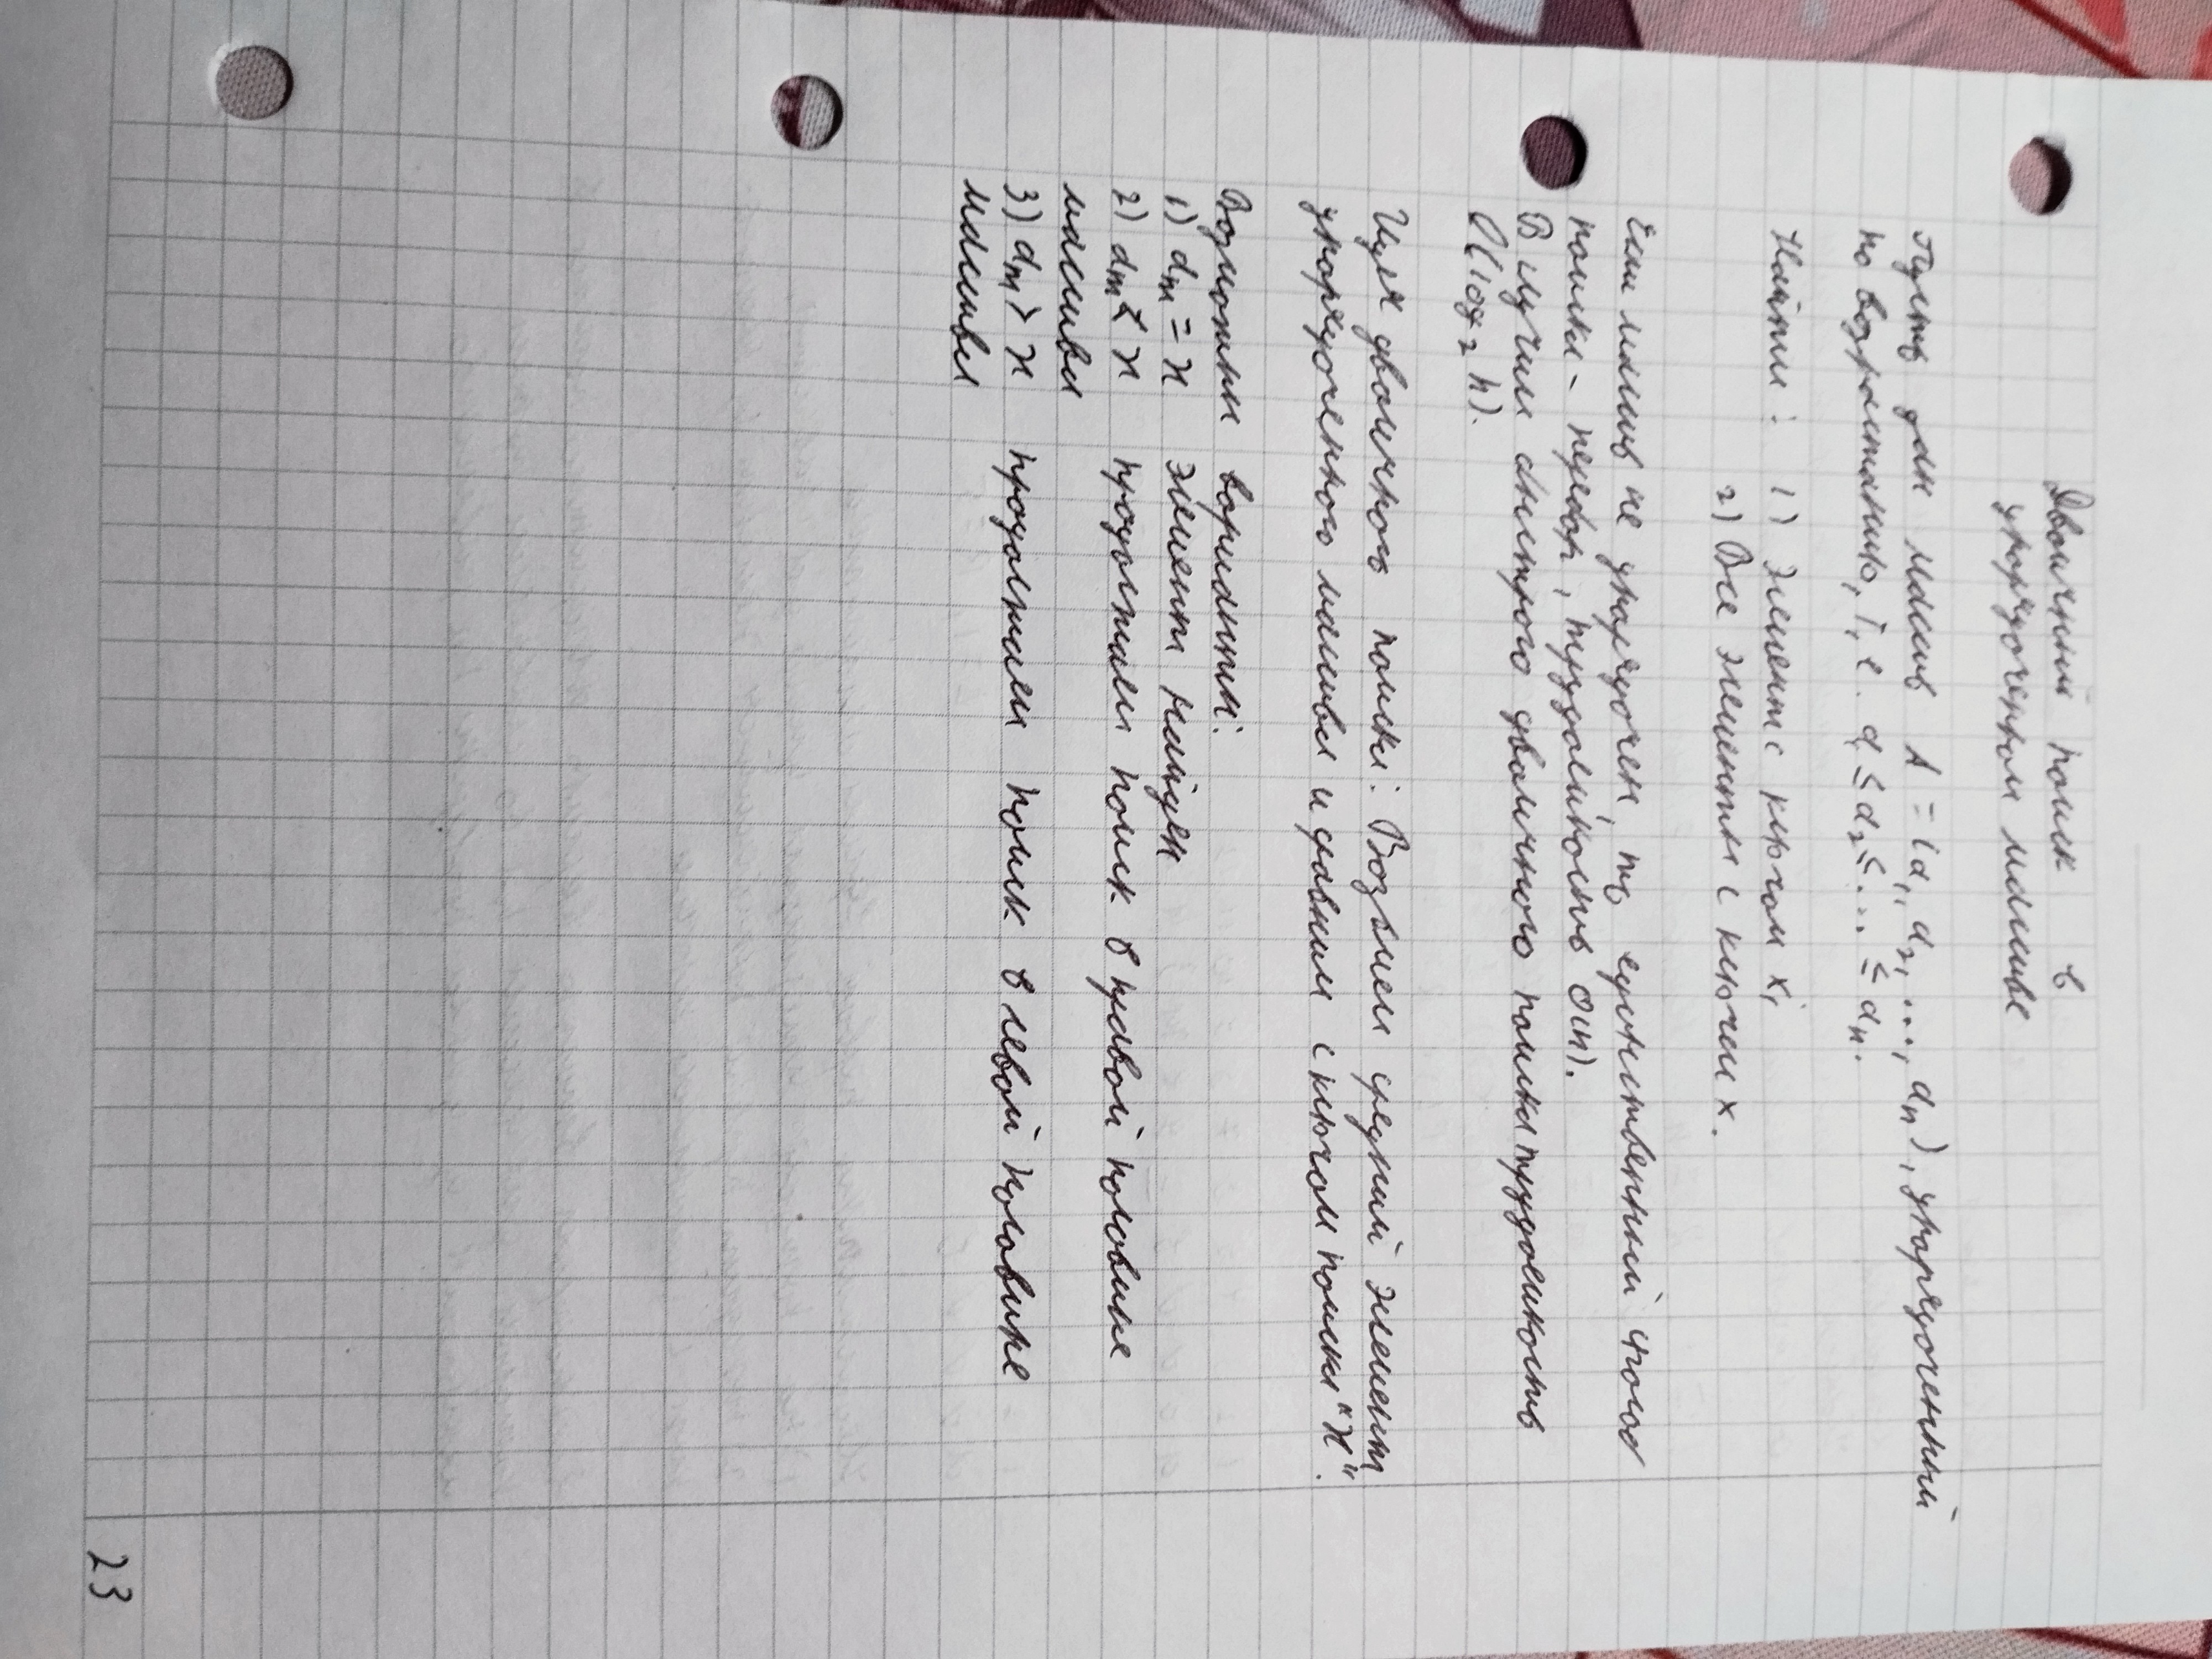 Двоичный поиск в
упорядоченном массиве
Пусть дан массив A = (a₁, a₂, ..., aₙ), упорядоченный
по возрастанию, т, е. a₁ ≤ a₂ ≤ ... ≤ aₙ.
Найти: 1) Элемент с ключом x;
2) Все элементы с ключем x.
Если массив не упорядочен, то единственный способ
поиска - перебор, трудоемкость O(n).
В случае быстрого двоичного поиска трудоемкость
O(log₂ n).
Идея двоичного поиска: Возьмем средний элемент
упорядоченного массива и сравним с ключом поиска "x".
Возможны варианты:
1) aₘ = x элемент найден
2) aₘ < x продолжаем поиск в правой половине
массива
3) aₘ > x продолжаем поиск в левой половине
массива
23